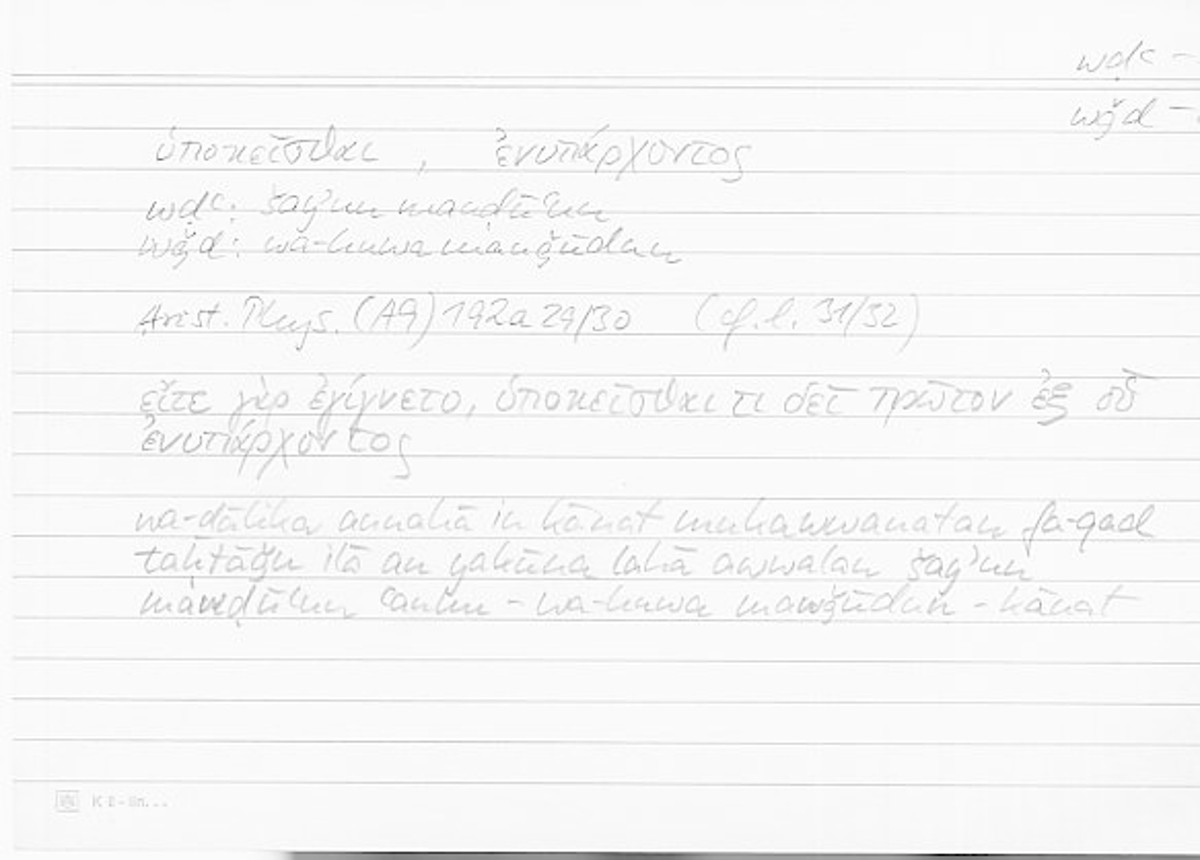 wḍʿ –
wǧd –
ὑποκεῖσθαι , ἐνυπάρχοντος
wḍʿ: šayʾun mawḍūʿun
wǧd: wa-huwa mauǧūdun
Arist. Phys. (A9) 192a 29/30 (cf. l. 31/32)
εἴτε γὰρ ἐγίγνετο, ὑποκεῖσθαί τι δεῖ πρῶτον ἐξ οὗ
ἐνυπάρχοντος
wa-ḏālika annahā in kānat mukawwanatan fa-qad
taḥtāǧu ilā an yakūna lahā awwalan šayʾun
mawḍūʿun ʿanhu – wa-huwa mawǧūdun – kānat